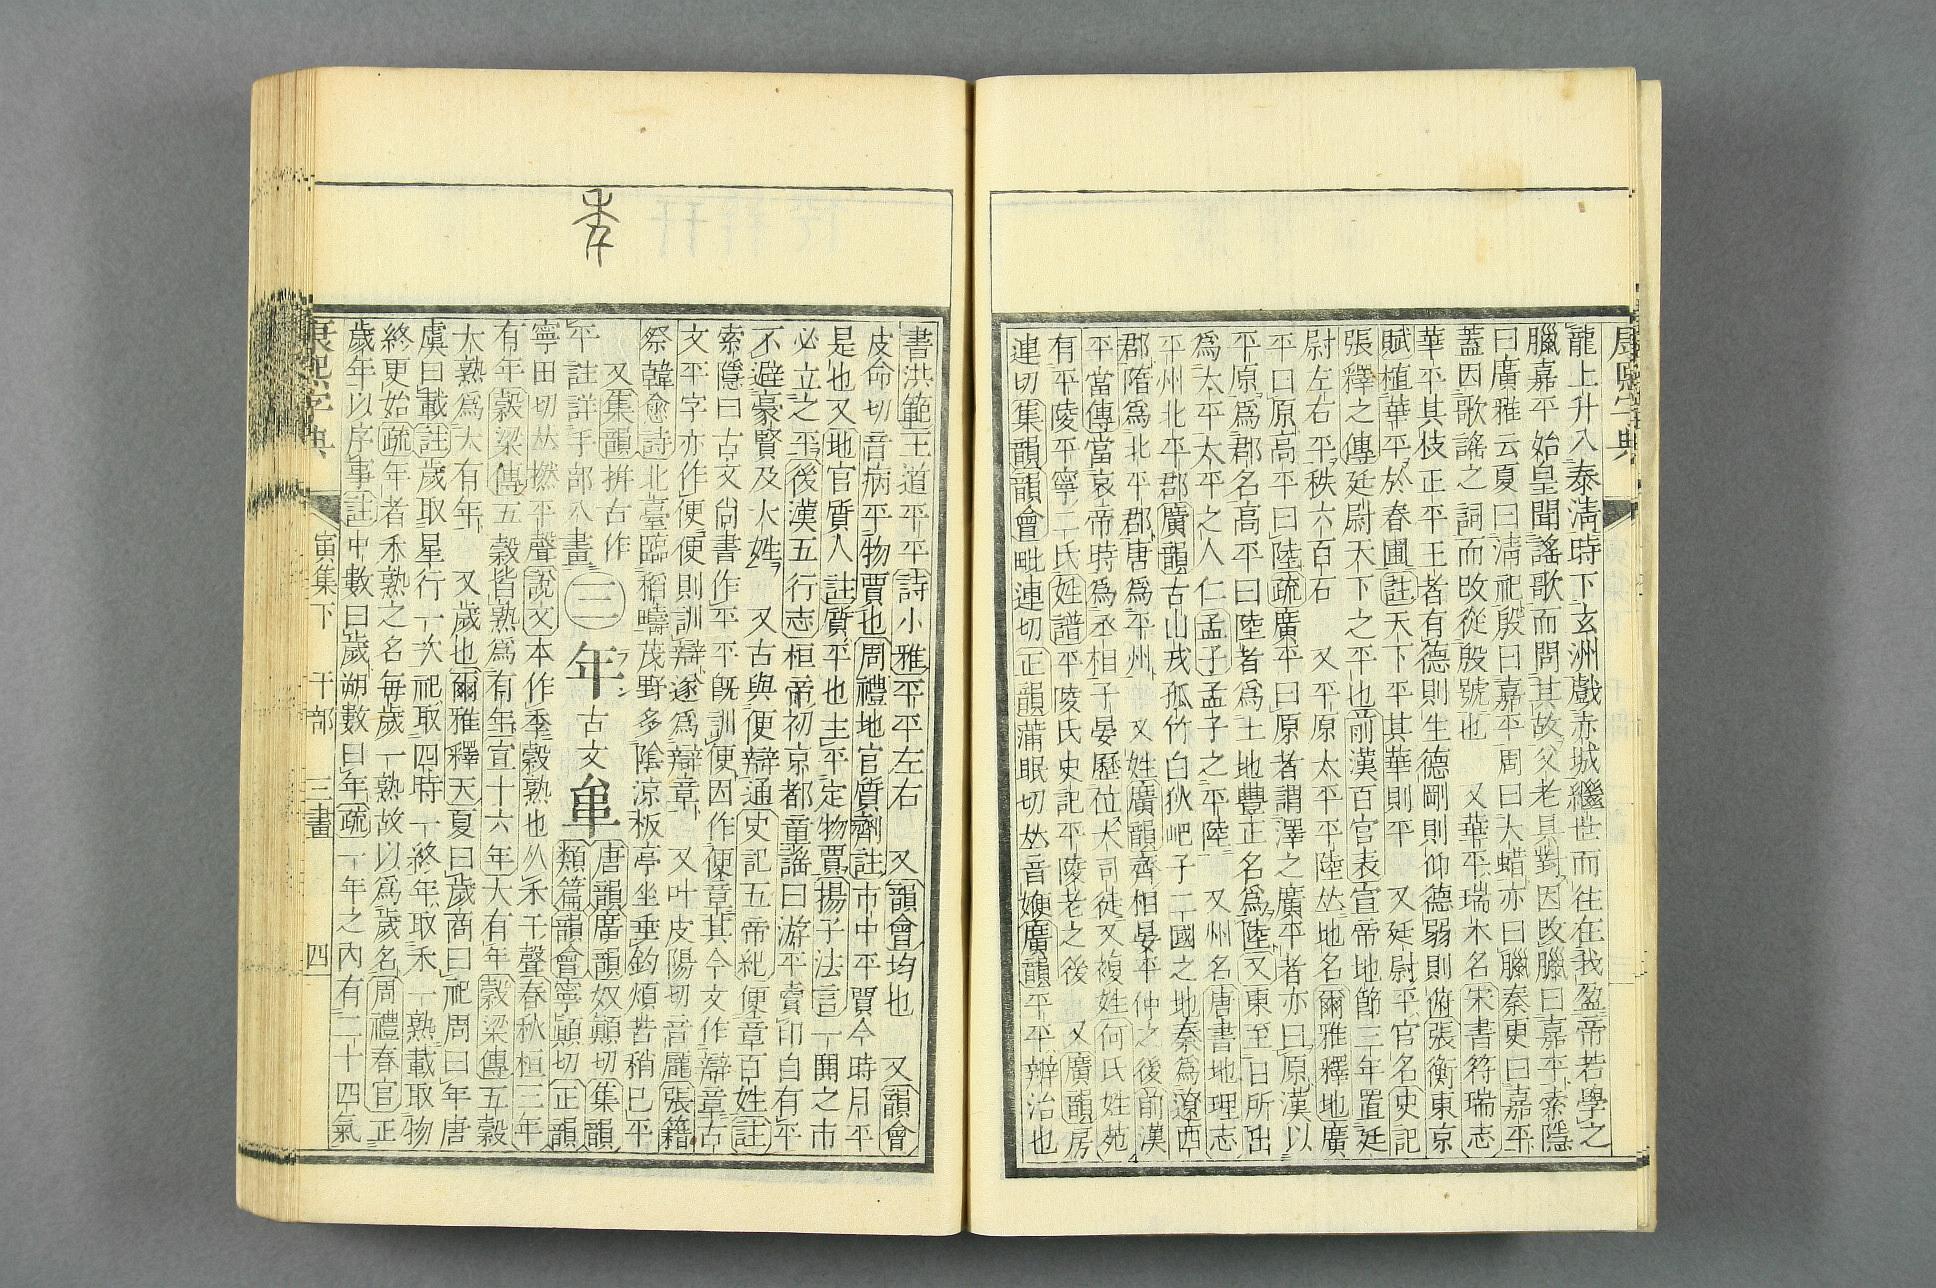 康熙字典
龍上升入泰淸時下玄洲戲赤城繼世而往在我盈帝若學之
臘嘉平始皇聞謠歌而問其故父老具對因改臘曰嘉平索隱
曰廣雅云夏曰淸祀殷曰嘉平周曰大蜡亦曰臘秦更曰嘉平
蓋因歌謠之詞而改從殷號也 又華平瑞木名宋書符瑞志
華平其枝正平王者有德則生德剛則仰德弱則俯張衡東京
賦植華平於春圃註天下平其華則平 又廷尉平官名史記
張釋之傳廷尉天下之平也前漢百官表宣帝地節三年置廷
尉左右平秩六百石 又平原太平平陸丛地名爾雅釋地廣
平曰原高平曰陸疏廣平曰原者謂澤之廣平者亦曰原漢以
平原爲郡名高平曰陸者爲土地豐正名爲陸又東至日所出
爲大平太平之人仁孟子孟子之平陸 又州名唐書地理志
平州北平郡廣韻古山戎孤竹白狄吧子二國之地秦爲遼西
郡隋爲北平郡唐爲平州 又姓廣韻齊相晏平仲之後前漢
平當傳當哀帝時爲丞相子晏歷位大司徒又複姓何氏姓苑
有平陵平寧二氏姓譜平陵氏史記平陵老之後 又廣韻房
連切集韻韻會毗連切正韻蒲眠切丛音楩廣韻平平辨治也
書洪範王道平平詩小雅平平左右 又韻會均也 又韻會
皮命切音病平物賈也周禮地官質劑註市中平賈今時月平
是也又地官質人註質平也主平定物賈揚子法言一閧之市
必立之平後漢五行志桓帝初京都童謠曰游平賣印自有平
不避豪賢及大姓 又古與便辯通史記五帝紀便章百姓註
索隱曰古文尙書作平平旣訓便因作便章其今文作辯章古
文平字亦作便便則訓辯遂爲辯章 又叶皮陽切音龐張籍
祭韓愈詩北臺臨稻疇茂野多陰涼板亭坐垂釣煩苦稍已平
又集韻拚古作
平註詳手部八畫
三
年古文𠦜唐韻廣韻奴顚切集韻
類篇韻會寧顚切正韻
寧田切丛撚平聲說文本作秊穀熟也从禾千聲春秋桓三年
有年穀梁傳五穀皆熟爲有年宣十六年大有年穀梁傳五穀
大熟爲大有年 又歲也爾雅釋天夏曰歲商曰祀周曰年唐
虞曰載註歲取星行一次祀取四時一終年取禾一熟載取物
終更始疏年者禾熟之名每歲一熟故以爲歲名周禮春官正
歲年以序事註中數曰歲朔數曰年疏一年之內有二十四氣
秊
康熙字典
寅集下 干部 三畫 四